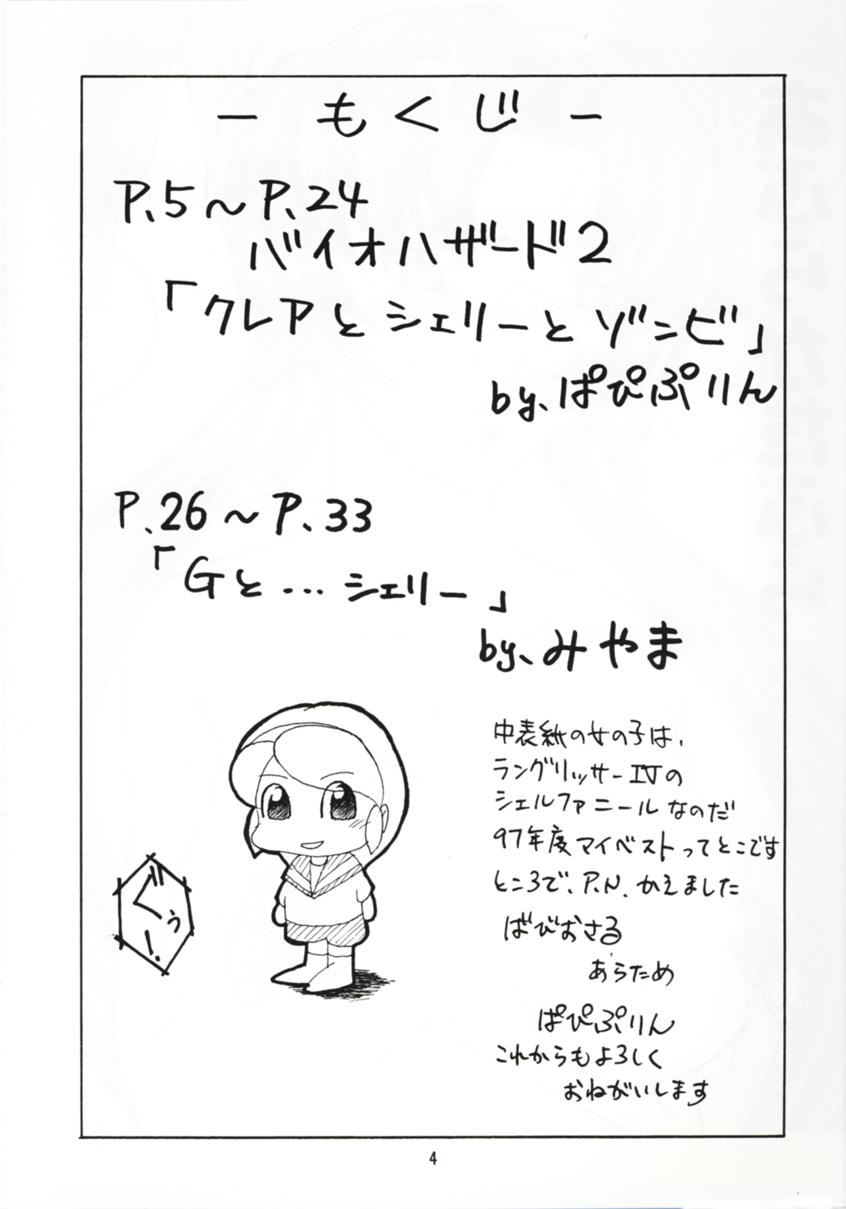 － もくじ －
P.5～P.24
バイオハザード2
「クレアとシェリーとゾンビ」
by.ぱぴぷりん
P.26～P.33
「Gと…シェリー」
by.みやま
中表紙の女の子は、
ラングリッサーⅣの
シェルファニールなのだ
97年度マイベストってとこです
ところで、P.N.かえました
ばびおさる
あらため
ぱぴぷりん
これからもよろしく
おねがいします
ぐぅ!
4